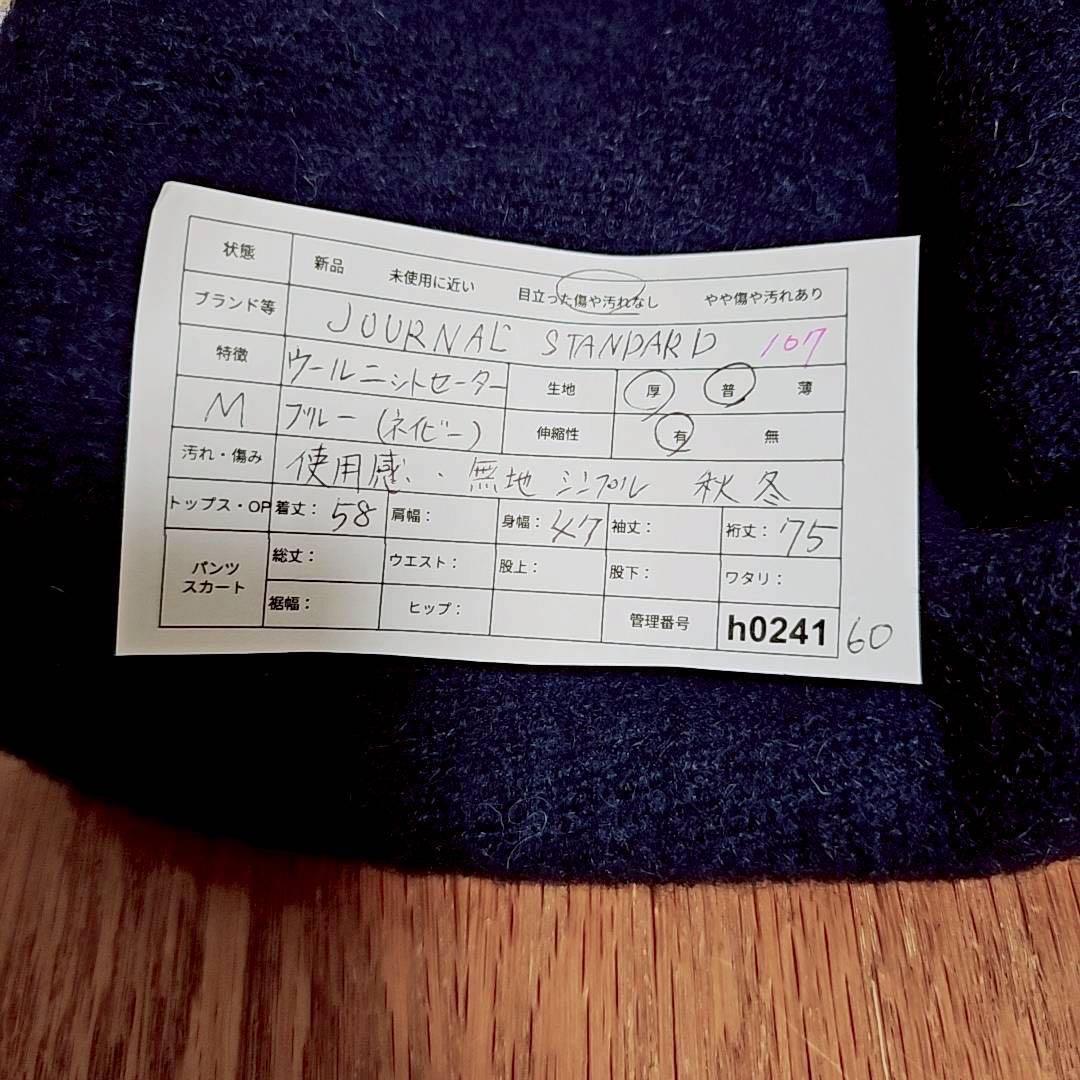 状態 新品 未使用に近い 目立った傷や汚れなし やや傷や汚れあり
ブランド等 JOURNAL STANDARD 107
特徴 ウールニットセーター 生地 厚 普 薄
M ブルー(ネイビー) 伸縮性 有 無
汚れ・傷み 使用感、、無地 シンプル 秋冬
トップス・OP 着丈: 58 肩幅: 身幅: 47 袖丈: 裄丈: 75
パンツ スカート 総丈: ウエスト: 股上: 股下: ワタリ:
裾幅: ヒップ: 管理番号 h0241 60